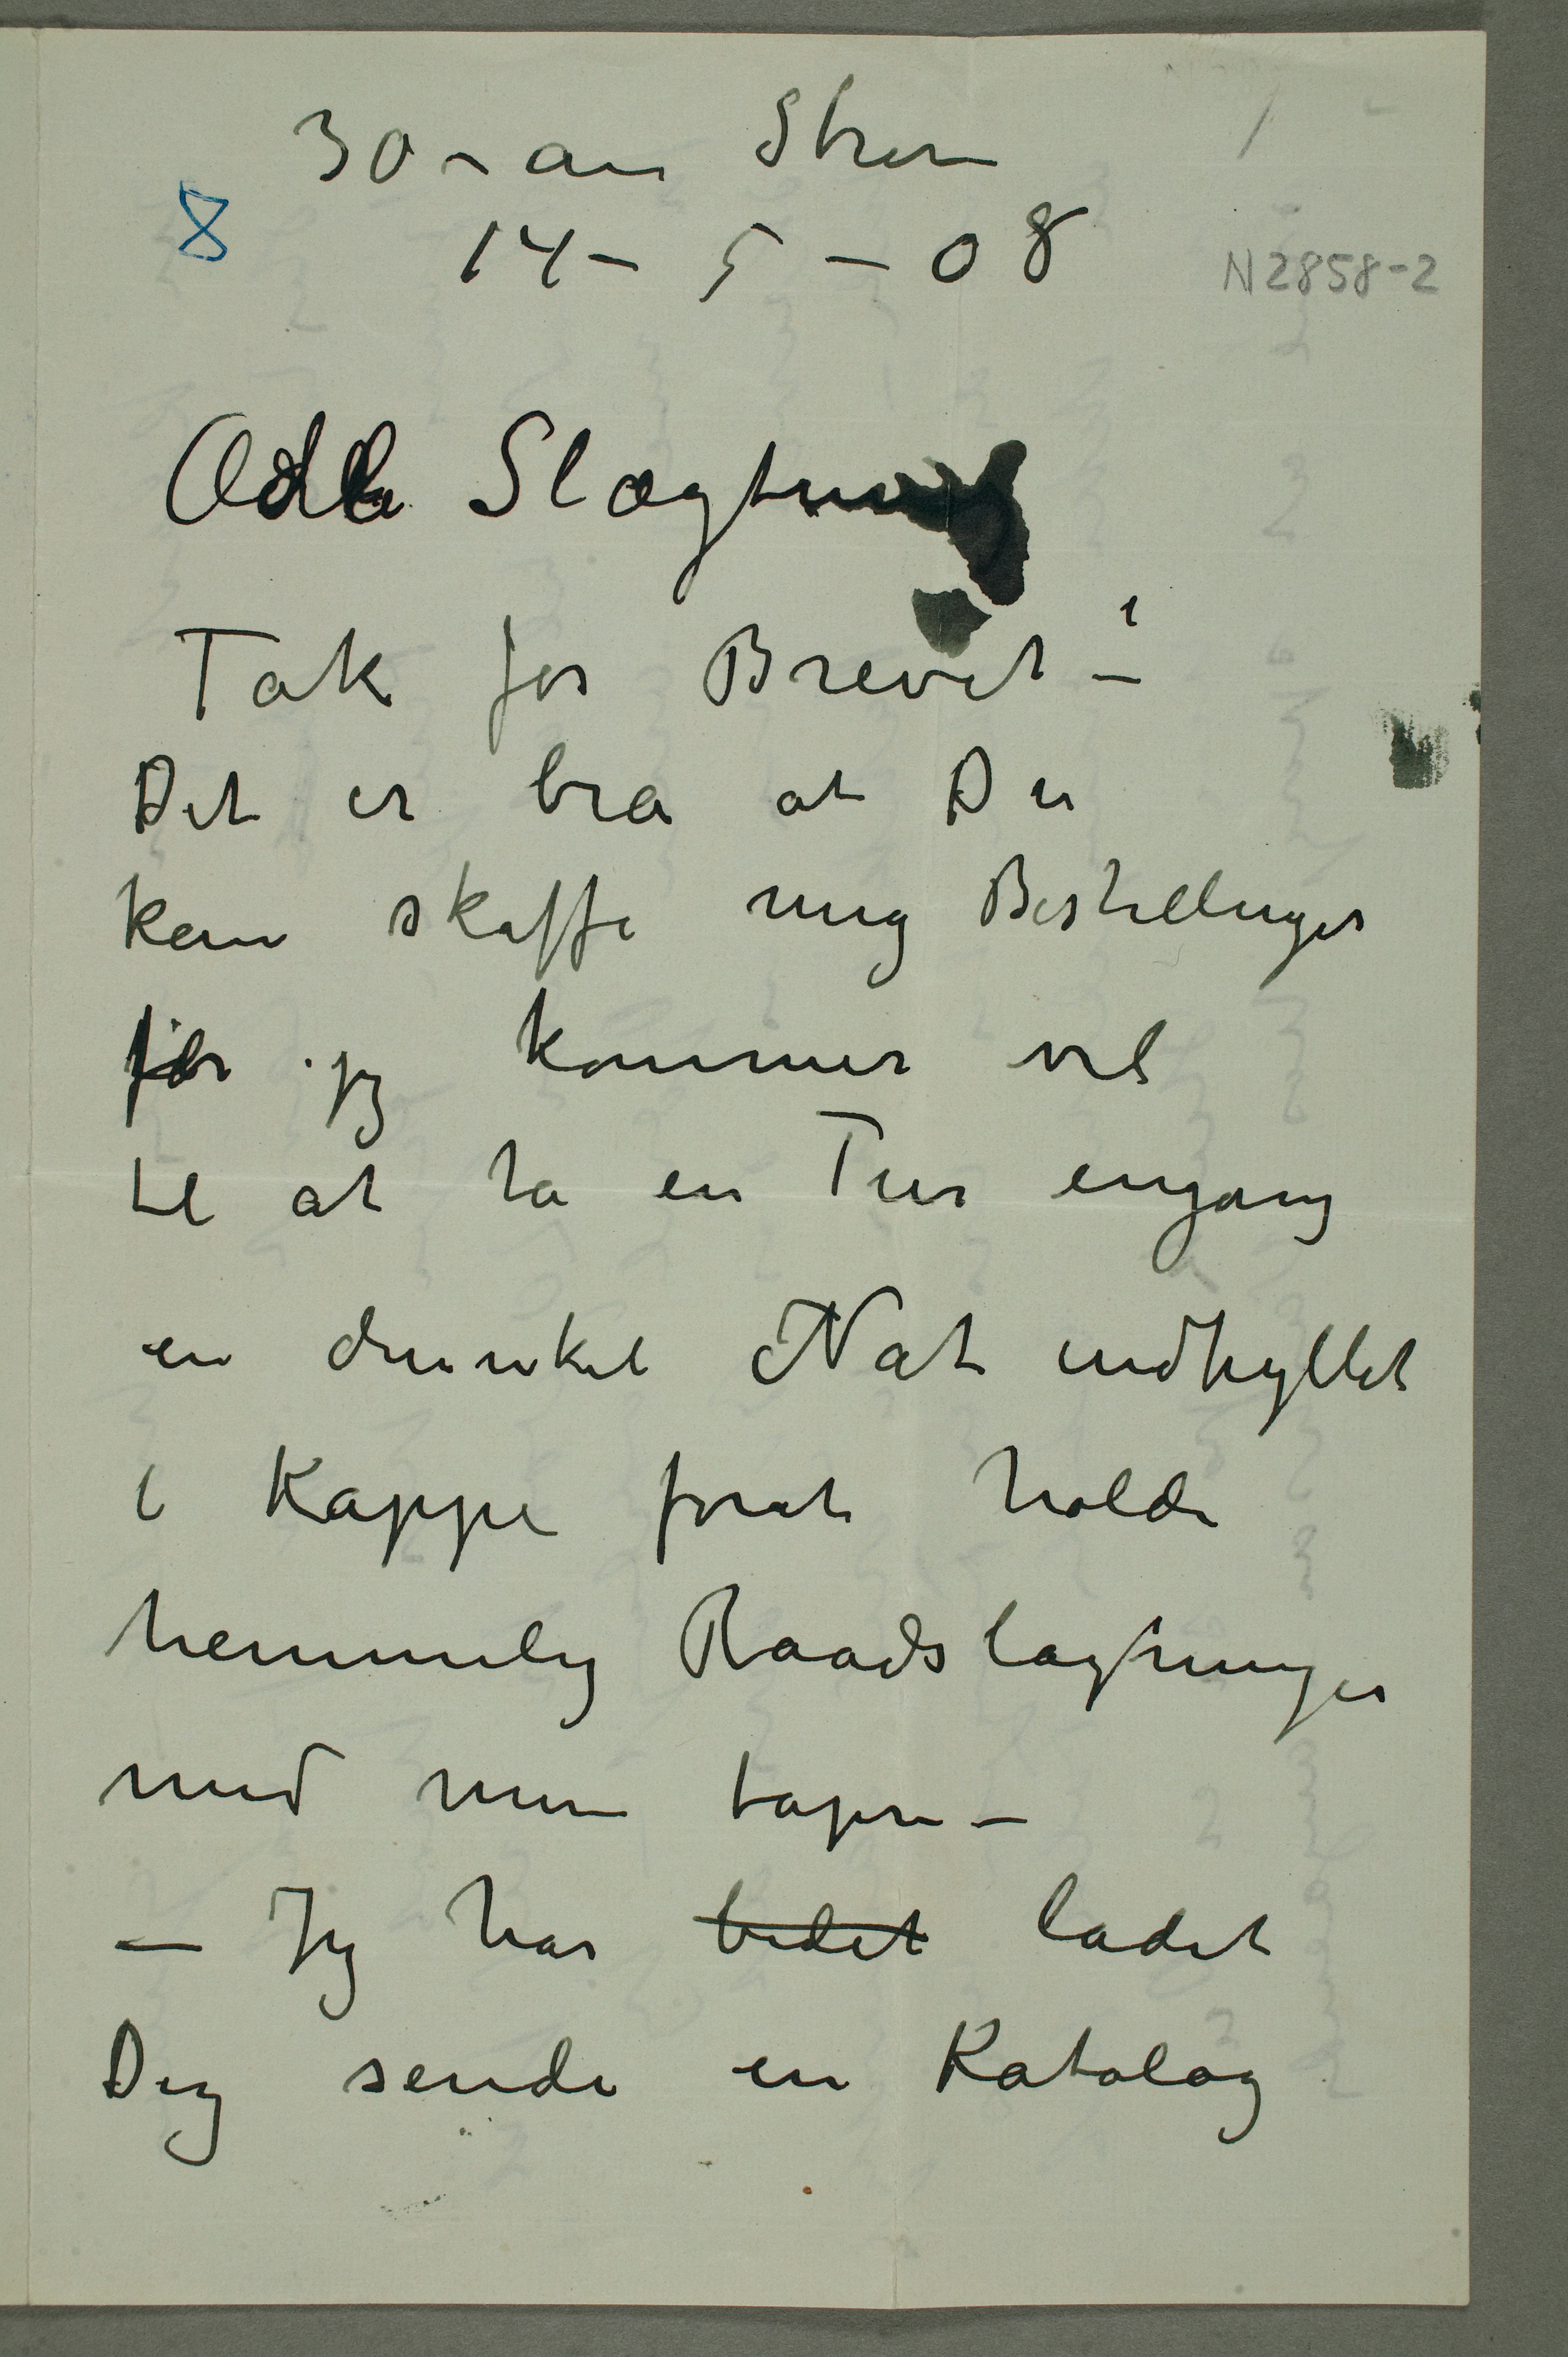 30 – am Strom
8 14 – 5 – 08
N 2858-2
Ædle Slægtning
Tak for Brevet –
Det er bra at Du
kan skaffe mig Bestillinger
for jeg kommer vel
til at ta en Tur engang
en dunkel Nat indhyllet
i Kappe forat holde
hemmelig Raadslagninger
med mine tapre –
– Jeg har bedet ladet
Dig sende en Katalog